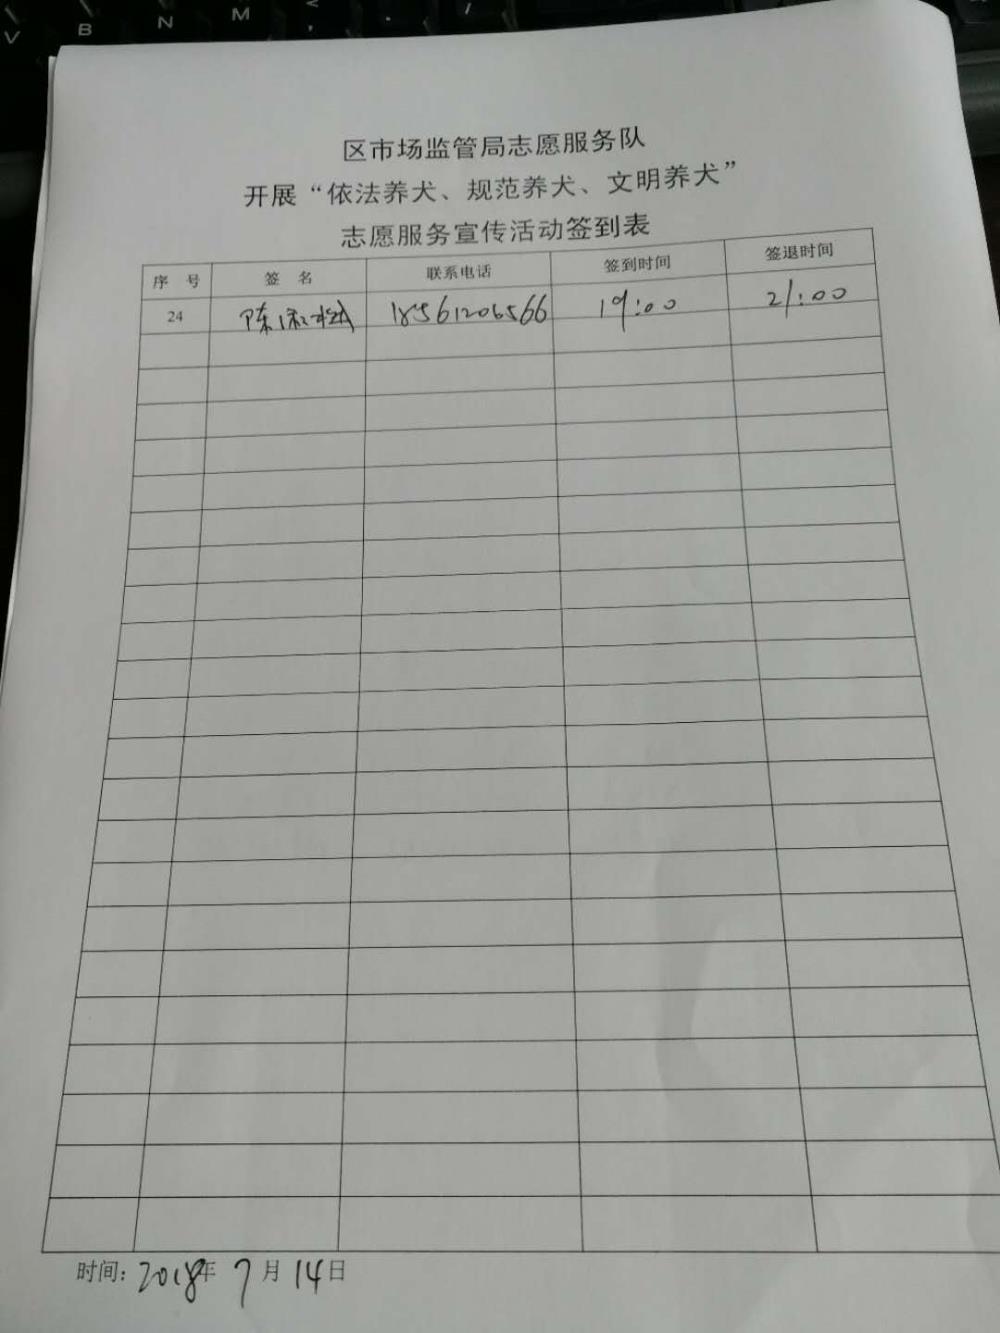 V B N M <
区市场监管局志愿服务队
开展“依法养犬、规范养犬、文明养犬”
志愿服务宣传活动签到表
序 号 签 名 联系电话 签到时间 签退时间
24 陈 18561206566 19:00 21:00
时间: 2018年 7月 14日